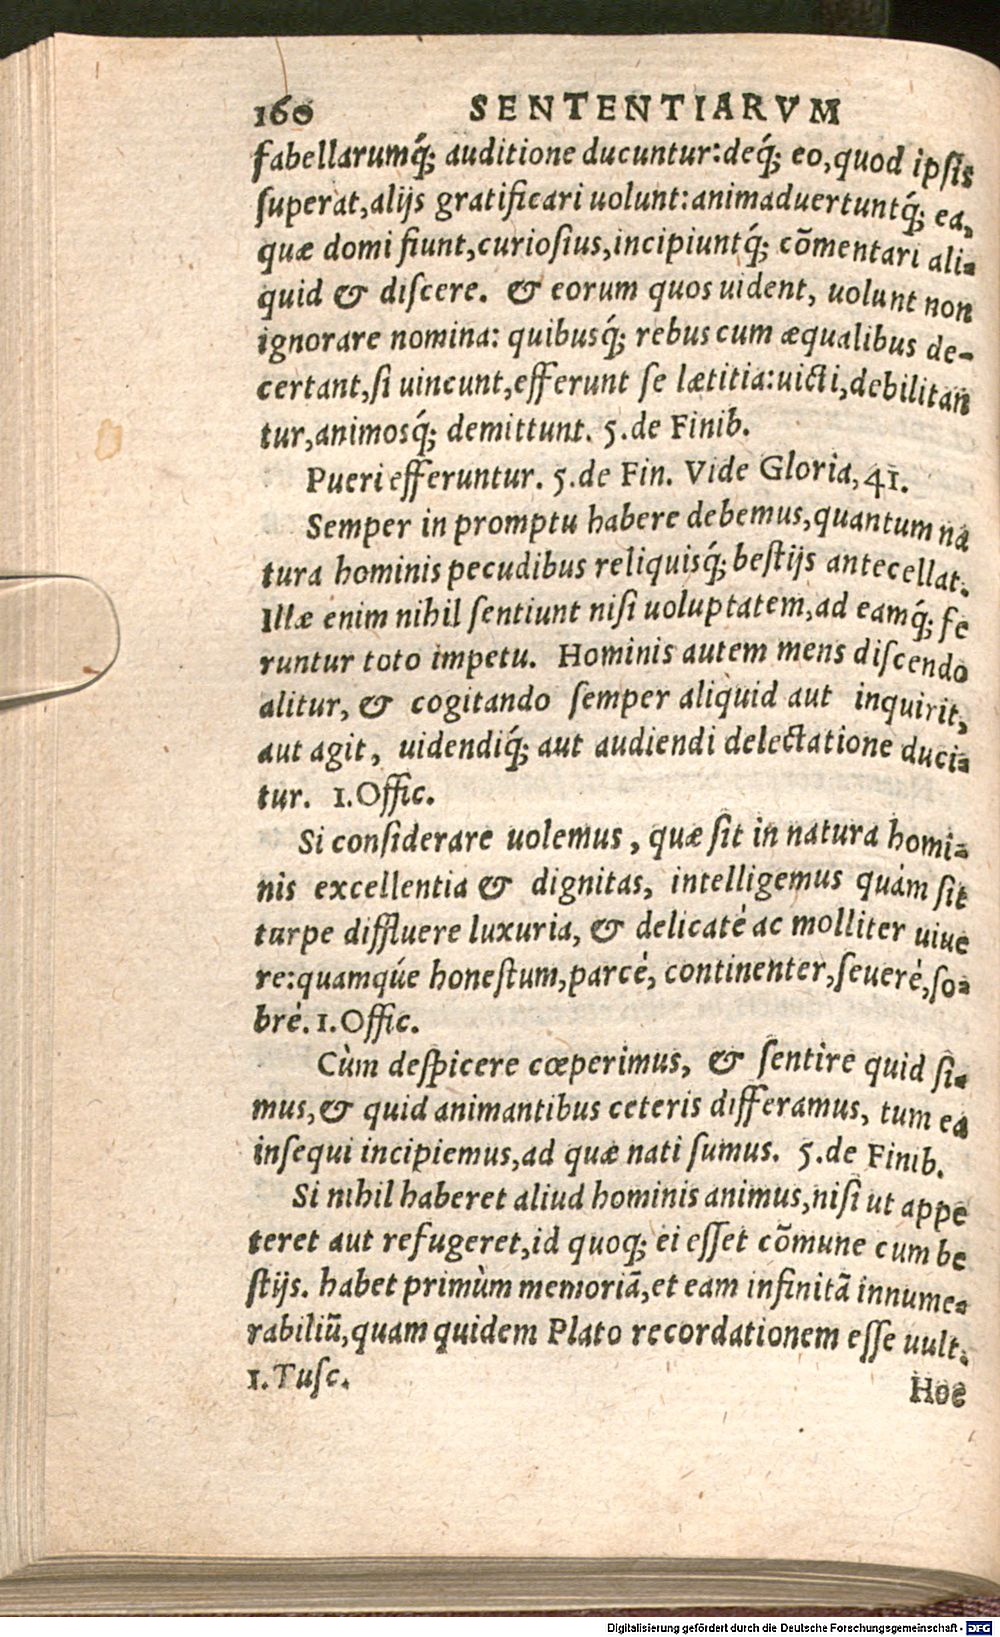 160 SENTENTIARVM
fabellarumq́; auditione ducuntur:deq́; eo,quod ipsis
superat,alijs gratificari uolunt:animaduertuntq́; ea,
quæ domi fiunt,curiosius,incipiuntq́; cõmentari ali-
quid & discere. & eorum quos uident, uolunt non
ignorare nomina: quibusq́; rebus cum æqualibus de-
certant,si uincunt,efferunt se lætitia:uicti,debilitan
tur,animosq́; demittunt. 5.de Finib.
Pueri efferuntur. 5.de Fin. Vide Gloria,41.
Semper in promptu habere debemus,quantum na
tura hominis pecudibus reliquisq́; bestijs antecellat.
Illæ enim nihil sentiunt nisi uoluptatem,ad eamq́; fe
runtur toto impetu. Hominis autem mens discendo
alitur, & cogitando semper aliquid aut inquirit,
aut agit, uidendiq́; aut audiendi delectatione duci-
tur. 1.Offic.
Si considerare uolemus, quæ sit in natura homi-
nis excellentia & dignitas, intelligemus quàm sit
turpe diffluere luxuria, & delicatè ac molliter uiue
re:quamq́ue honestum,parcè, continenter,seuerè,so-
brè. 1.Offic.
Cùm despicere cœperimus, & sentire quid si-
mus,& quid animantibus ceteris differamus, tum ea
insequi incipiemus,ad quæ nati sumus. 5.de Finib.
Si nihil haberet aliud hominis animus,nisi ut appe
teret aut refugeret,id quoq; ei esset cõmune cum be
stijs. habet primùm memoriã,et eam infinitã innume-
rabiliũ,quam quidem Plato recordationem esse uult.
1.Tusc.
Hoc
Digitalisierung gefördert durch die Deutsche Forschungsgemeinschaft - DFG